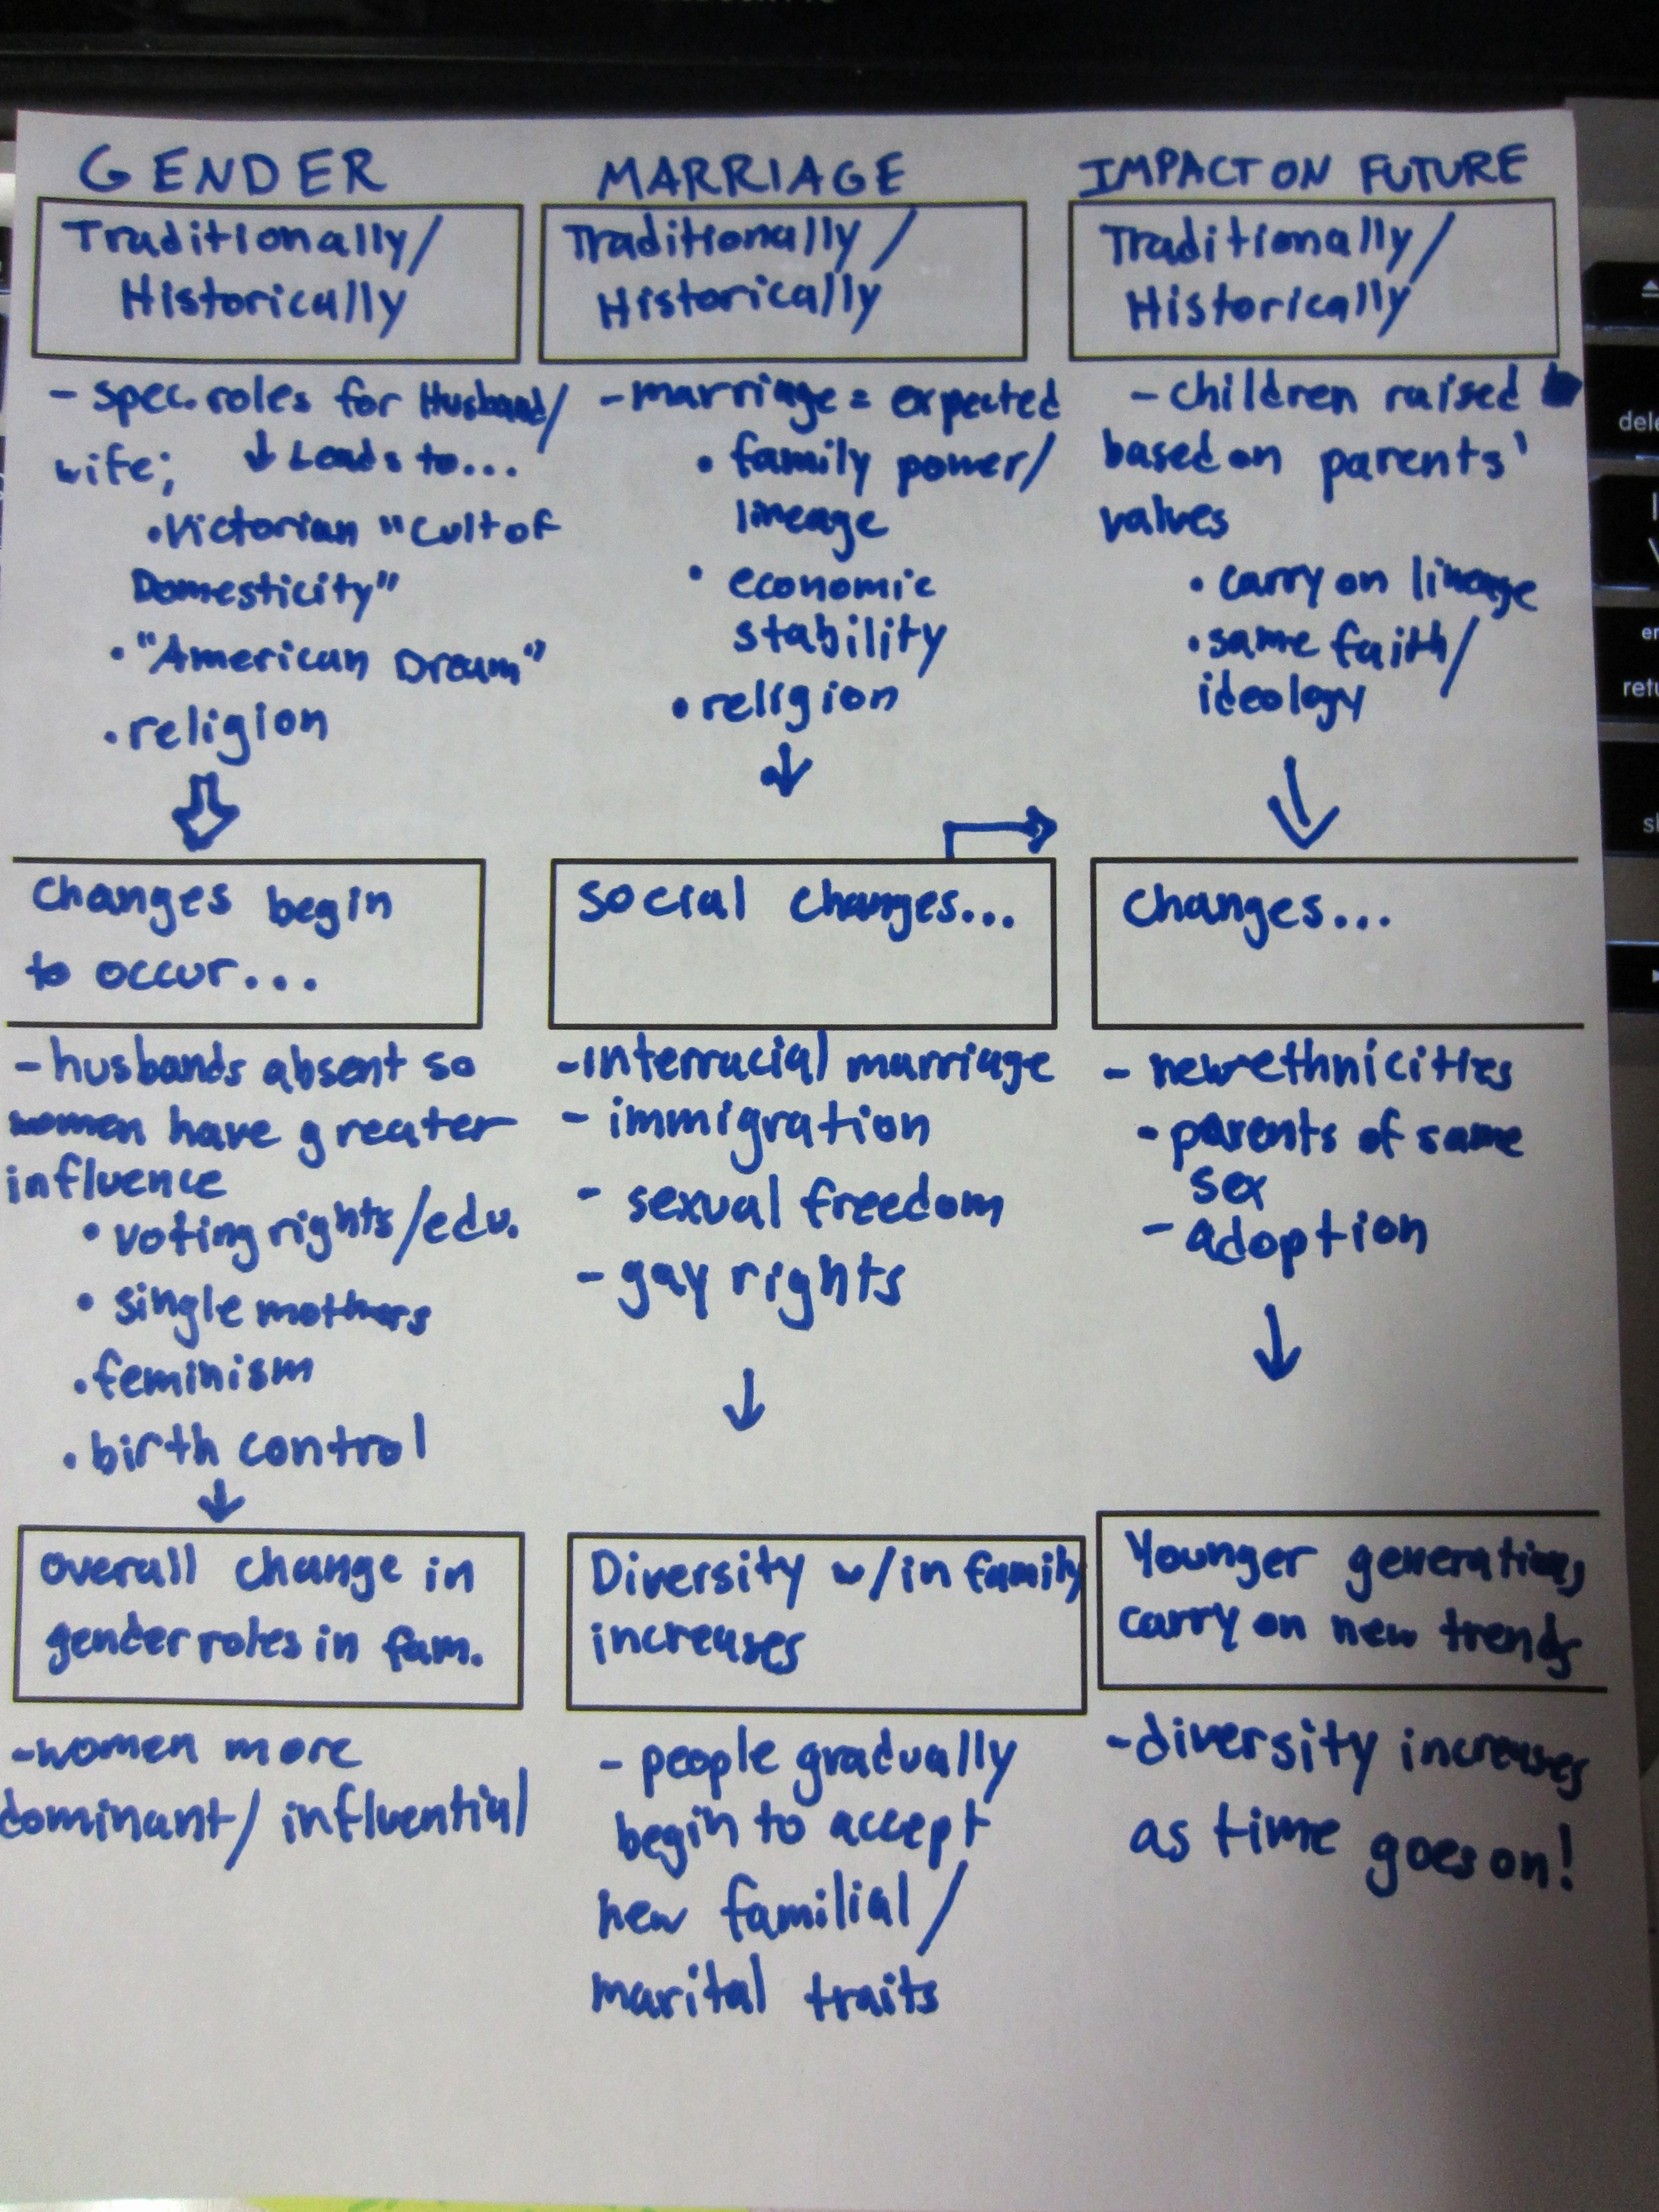 GENDER
Traditionally/
Historically
- spec. roles for Husband/
wife; ↓ Leads to...
• Victorian "Cult of
Domesticity"
• "American Dream"
• religion
Changes begin
to occur...
- husbands absent so
women have greater
influence
• voting rights/edu.
• single mothers
• feminism
• birth control
overall change in
gender roles in fam.
- women more
dominant/ influential
MARRIAGE
Traditionally/
Historically
- marriage = expected
• family power/
lineage
• economic
stability
• religion
social changes...
- interracial marriage
- immigration
- sexual freedom
- gay rights
Diversity w/in family
increases
- people gradually
begin to accept
new familial/
marital traits
IMPACT ON FUTURE
Traditionally/
Historically
- children raised
based on parents'
values
• carry on lineage
• same faith/
ideology
Changes...
- new ethnicities
- parents of same
sex
- adoption
Younger generations
carry on new trends
- diversity increases
as time goes on!